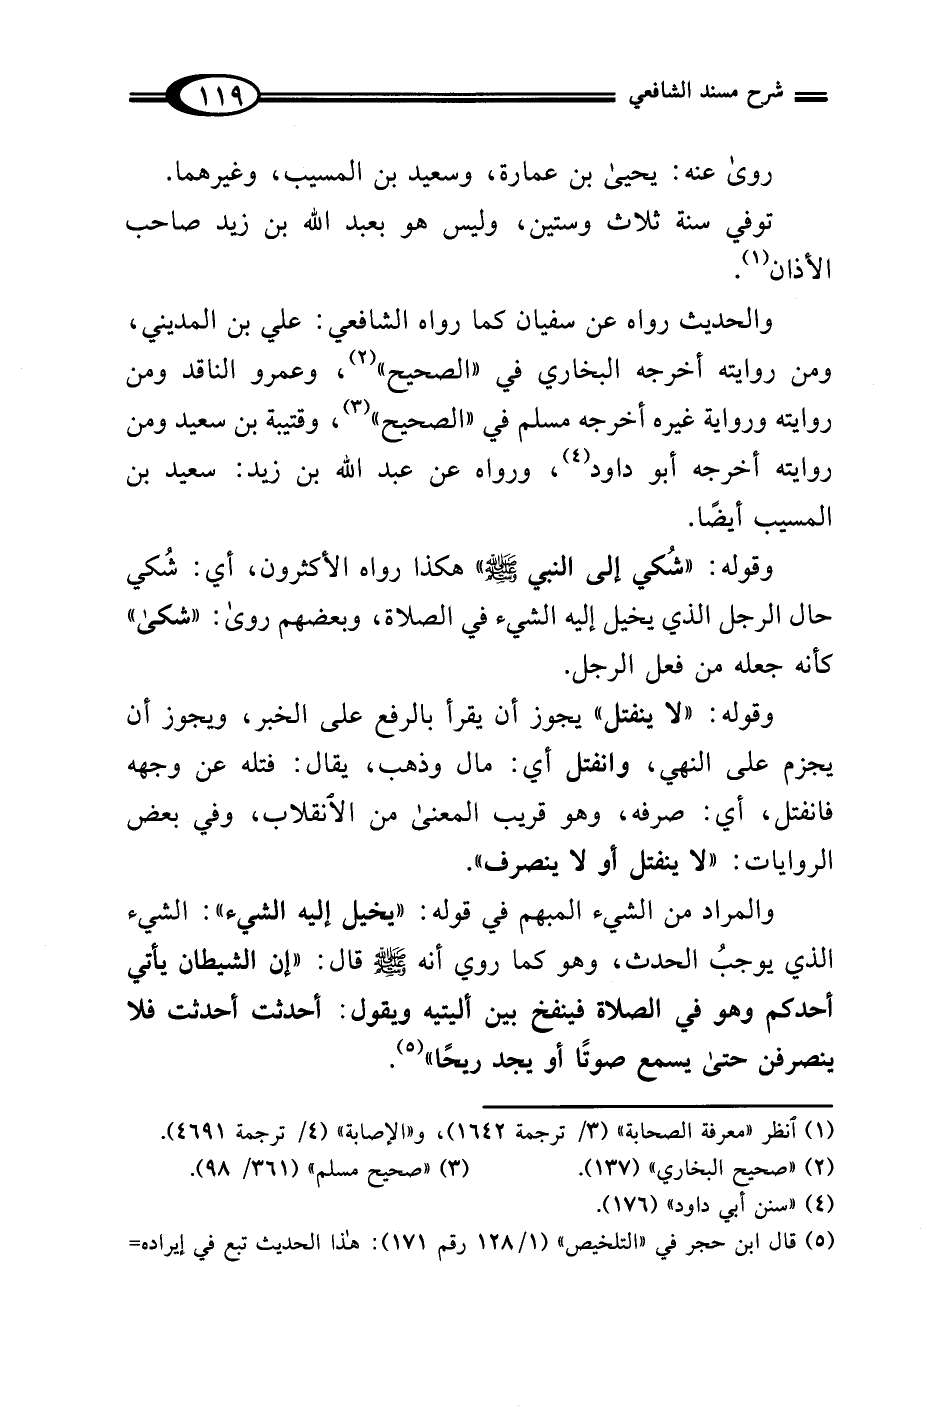 شرح مسند الشافعي ١١٩
روىٰ عنه: يحيىٰ بن عمارة، وسعيد بن المسيب، وغيرهما.
توفي سنة ثلاث وستين، وليس هو بعبد الله بن زيد صاحب
الأذان(١).
والحديث رواه عن سفيان كما رواه الشافعي: علي بن المديني،
ومن روايته أخرجه البخاري في «الصحيح»(٢)، وعمرو الناقد ومن
روايته ورواية غيره أخرجه مسلم في «الصحيح»(٣)، وقتيبة بن سعيد ومن
روايته أخرجه أبو داود(٤)، ورواه عن عبد الله بن زيد: سعيد بن
المسيب أيضًا.
وقوله: «شُكي إلى النبي ﷺ» هكذا رواه الأكثرون، أي: شُكي
حال الرجل الذي يخيل إليه الشيء في الصلاة، وبعضهم روىٰ: «شكىٰ»
كأنه جعله من فعل الرجل.
وقوله: «لا ينفتل» يجوز أن يقرأ بالرفع على الخبر، ويجوز أن
يجزم على النهي، وانفتل أي: مال وذهب، يقال: فتله عن وجهه
فانفتل، أي: صرفه، وهو قريب المعنىٰ من الأنقلاب، وفي بعض
الروايات: «لا ينفتل أو لا ينصرف».
والمراد من الشيء المبهم في قوله: «يخيل إليه الشيء»: الشيء
الذي يوجبُ الحدث، وهو كما روي أنه ﷺ قال: «إن الشيطان يأتي
أحدكم وهو في الصلاة فينفخ بين أليتيه ويقول: أحدثت أحدثت فلا
ينصرفن حتىٰ يسمع صوتًا أو يجد ريحًا»(٥).
(١) أنظر «معرفة الصحابة» (٣/ ترجمة ١٦٤٢)، و«الإصابة» (٤/ ترجمة ٤٦٩١).
(٢) «صحيح البخاري» (١٣٧). (٣) «صحيح مسلم» (٣٦١/ ٩٨).
(٤) «سنن أبي داود» (١٧٦).
(٥) قال ابن حجر في «التلخيص» (١/ ١٢٨ رقم ١٧١): هٰذا الحديث تبع في إيراده=